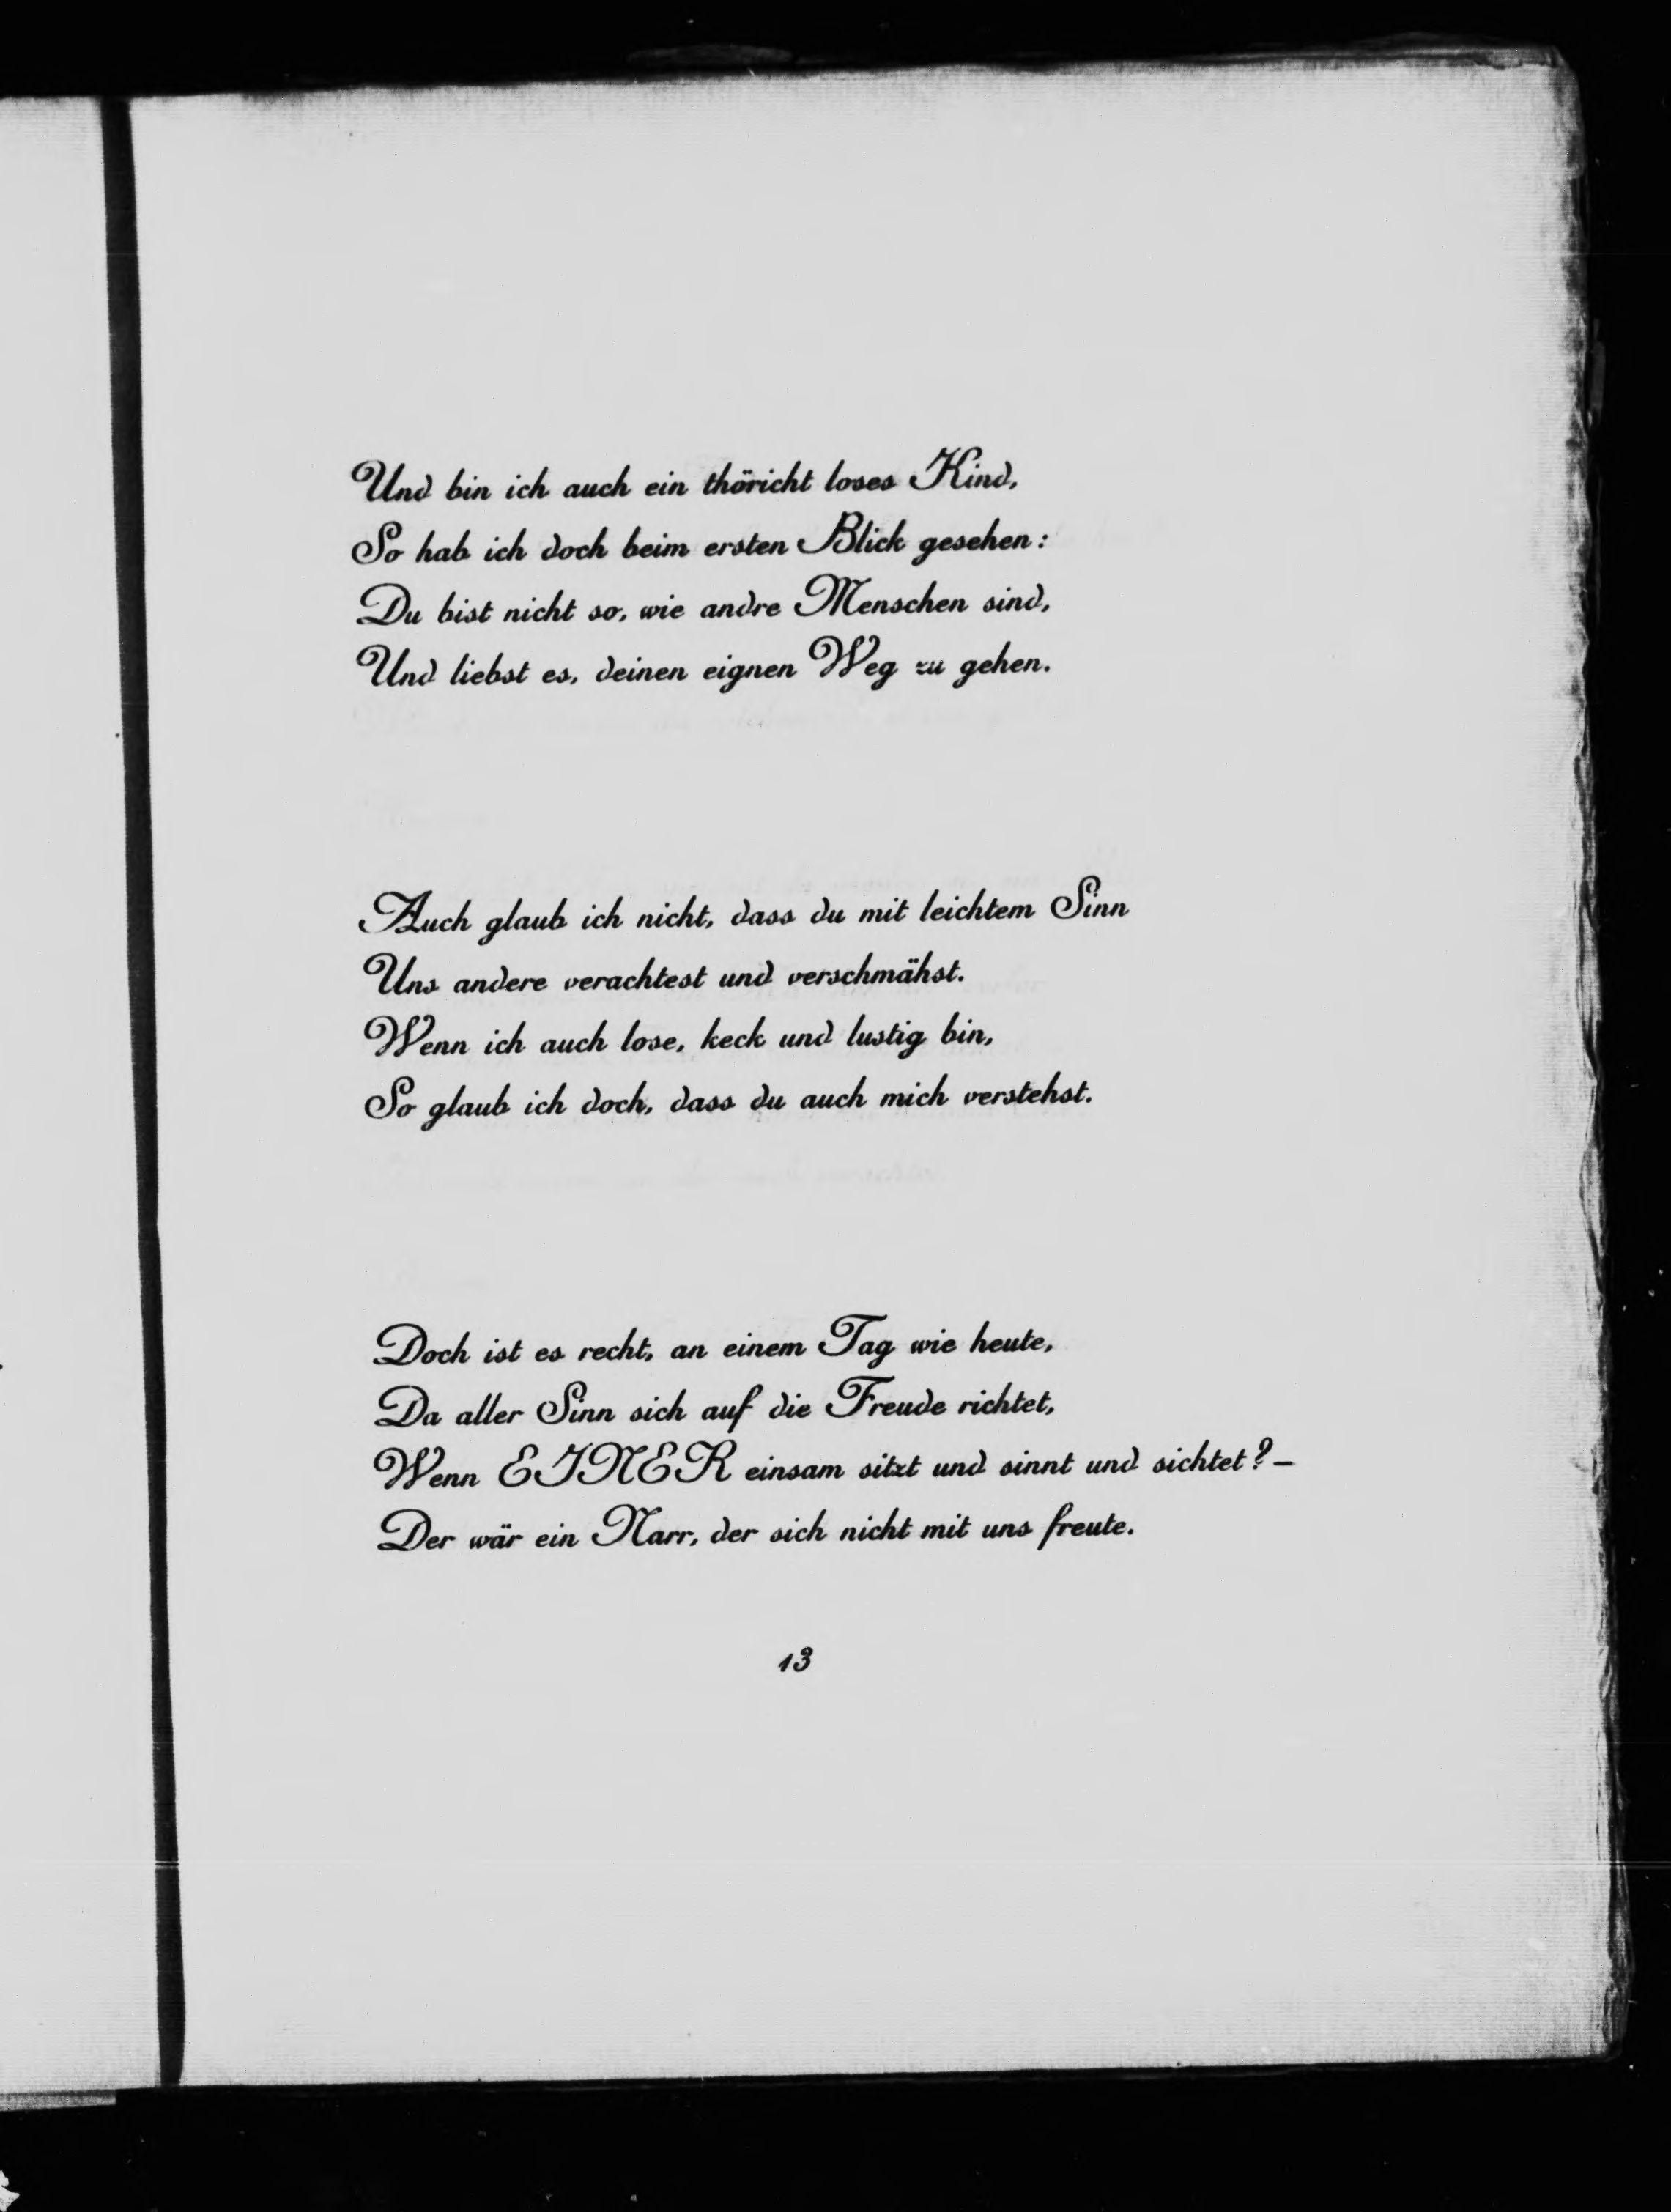 Und bin ich auch ein thöricht loses Kind,
So hab ich doch beim ersten Blick gesehen:
Du bist nicht so, wie andre Menschen sind,
Und liebst es, deinen eignen Weg zu gehen.
Auch glaub ich nicht, dass du mit leichtem Sinn
Uns andere verachtest und verschmähst.
Wenn ich auch lose, keck und lustig bin,
So glaub ich doch, dass du auch mich verstehst.
Doch ist es recht, an einem Tag wie heute,
Da aller Sinn sich auf die Freude richtet,
Wenn EINER einsam sitzt und sinnt und sichtet? –
Der wär ein Narr, der sich nicht mit uns freute.
13